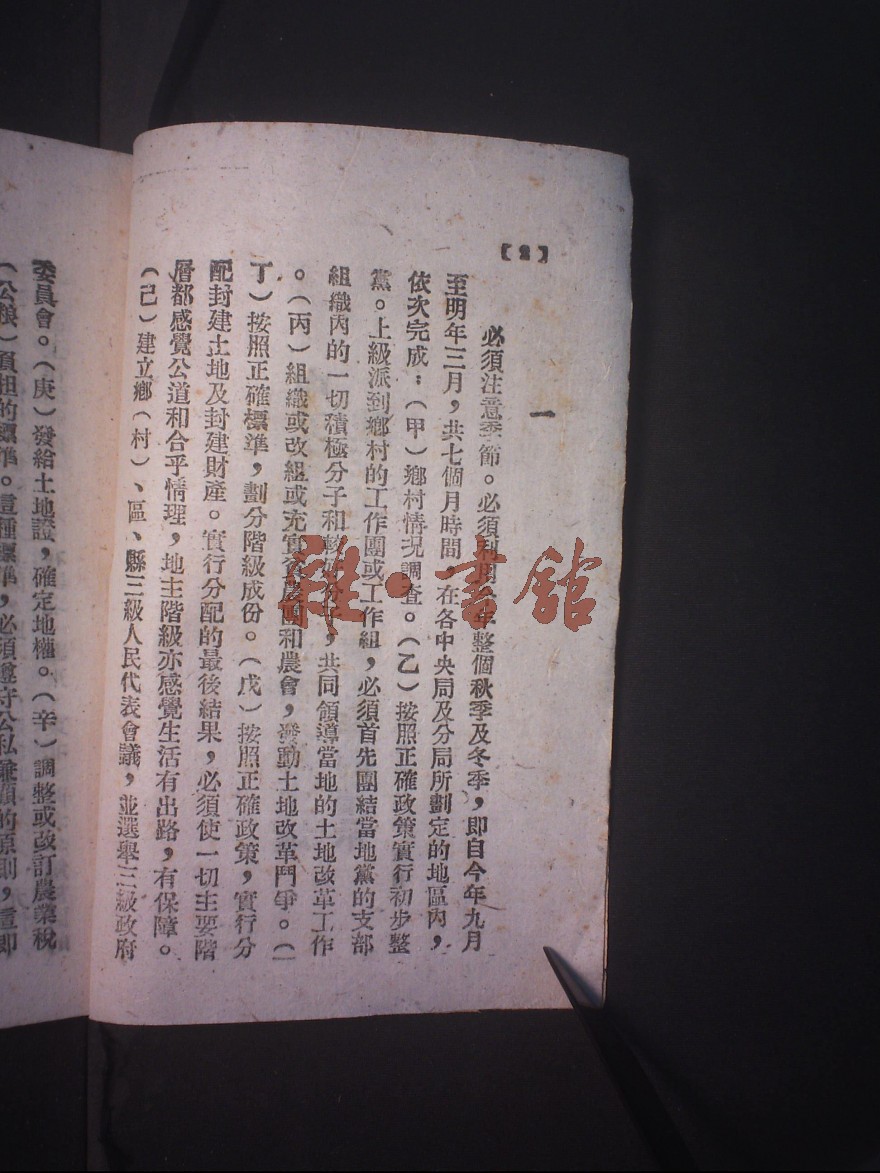 【2】
一
必須注意季節。必須利用今年整個秋季及冬季，卽自今年九月
至明年三月，共七個月時間，在各中央局及分局所劃定的地區內，
依次完成：（甲）鄉村情況調查。（乙）按照正確政策實行初步整
黨。上級派到鄉村的工作團或工作組，必須首先團結當地黨的支部
組織內的一切積極分子和較好分子，共同領導當地的土地改革工作
。（丙）組織或改組或充實貧農團和農會，發動土地改革鬥爭。（
丁）按照正確標準，劃分階級成份。（戊）按照正確政策，實行分
配封建土地及封建財產。實行分配的最後結果，必須使一切主要階
層都感覺公道和合乎情理，地主階級亦感覺生活有出路，有保障。
（己）建立鄉（村）、區、縣三級人民代表會議，並選舉三級政府
委員會。（庚）發給土地證，確定地權。（辛）調整或改訂農業稅
（公糧）負担的標準。這種標準，必須遵守公私兼顧的原則，這卽
雜·書館